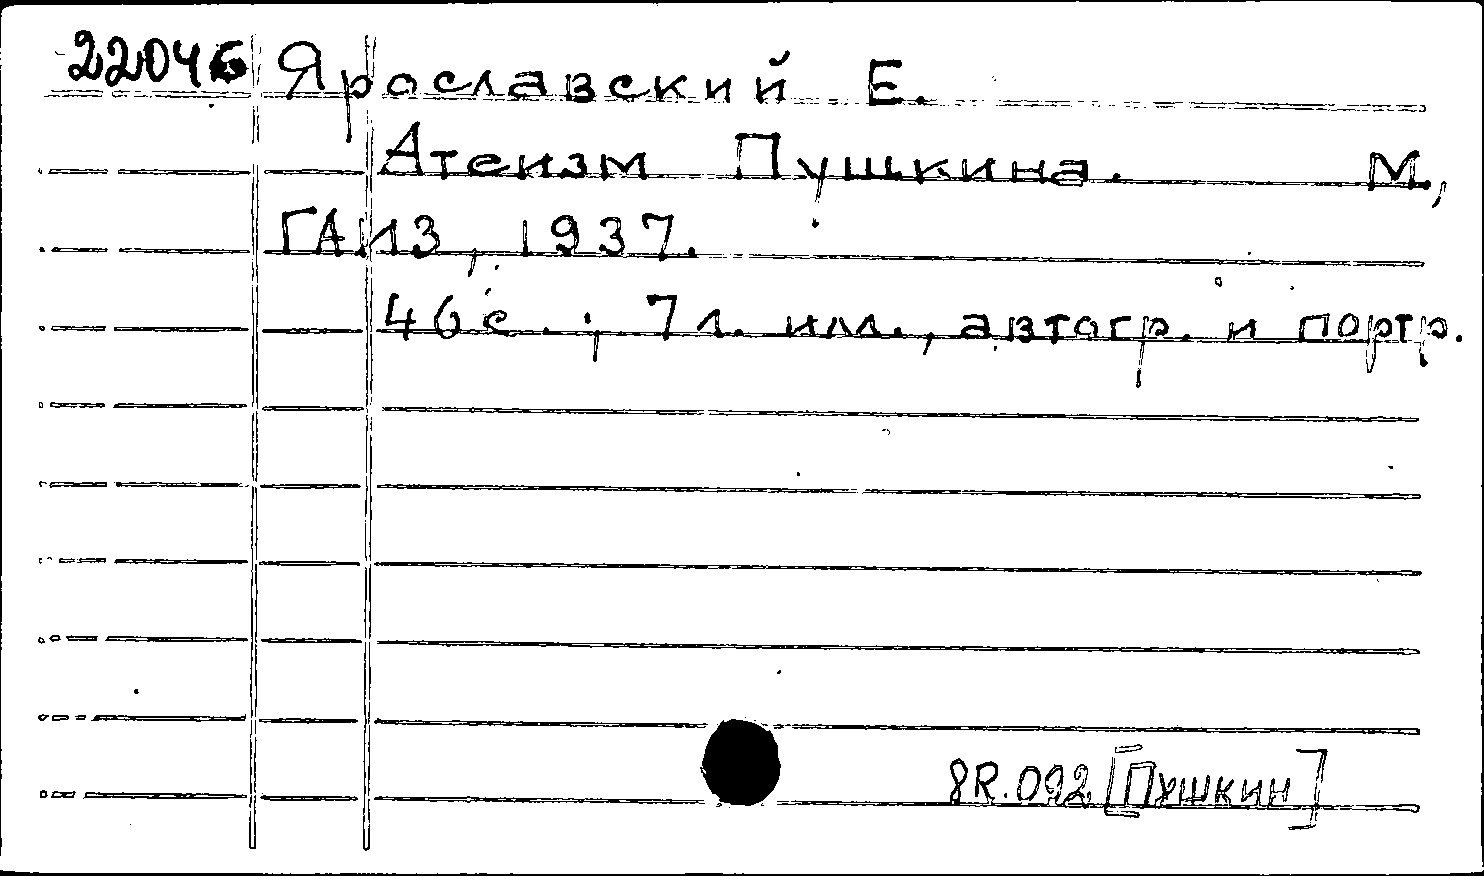 22046 Ярославский Е.
Атеизм Пушкина. М,
ГАИЗ, 1937.
46 с. ; 7 л. илл., автогр. и портр.
8R.092 [Пушкин]